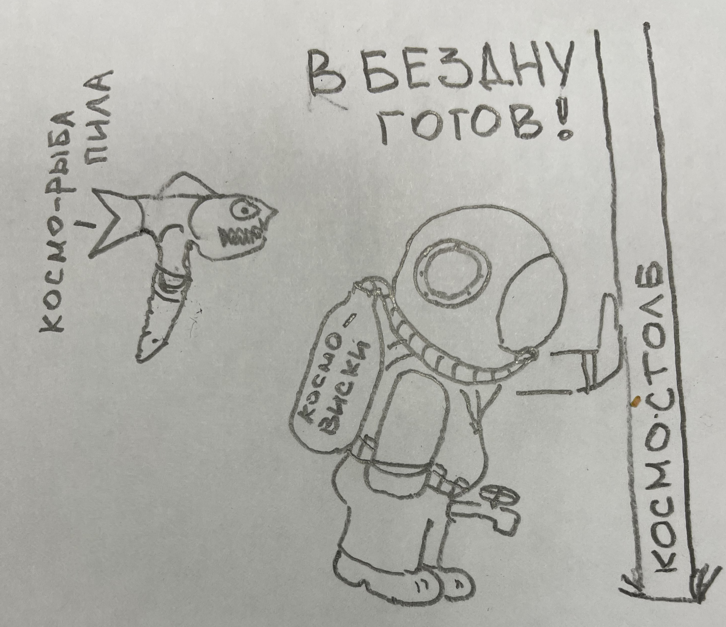 В БЕЗДНУ
ГОТОВ!
КОСМО-РЫБА
ПИЛА
КОСМО-
ВИСКИ
КОСМО·СТОЛБ